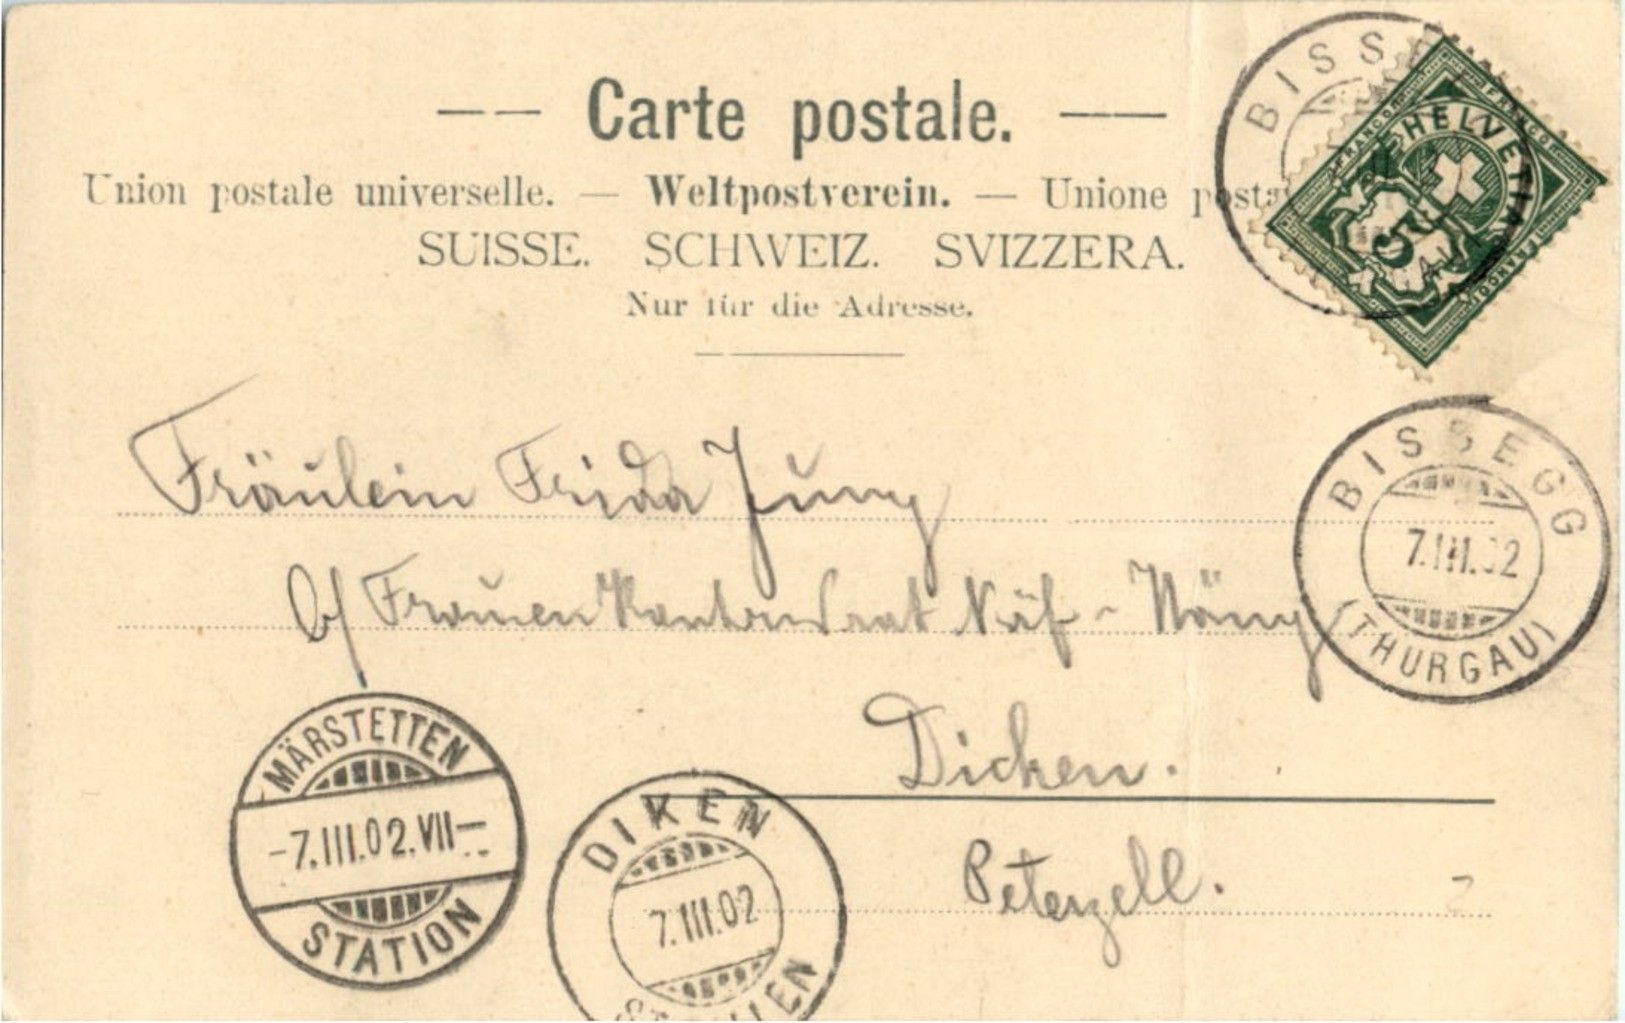 Carte postale.
Union postale universelle. — Weltpostverein. — Unione posta
SUISSE. SCHWEIZ. SVIZZERA.
Nur für die Adresse.
BISSE
FRANCO HELVETIA FRANCO
5
FRANCO
BISSEGG
7.III.02
(THURGAU)
Fräulein Frida Jung
b/ Frauen Kantonsrat Näf-
Dicken.
Peterzell.
MÄRSTETTEN
-7.III.02.VII-
STATION
DIKEN
7.III.02